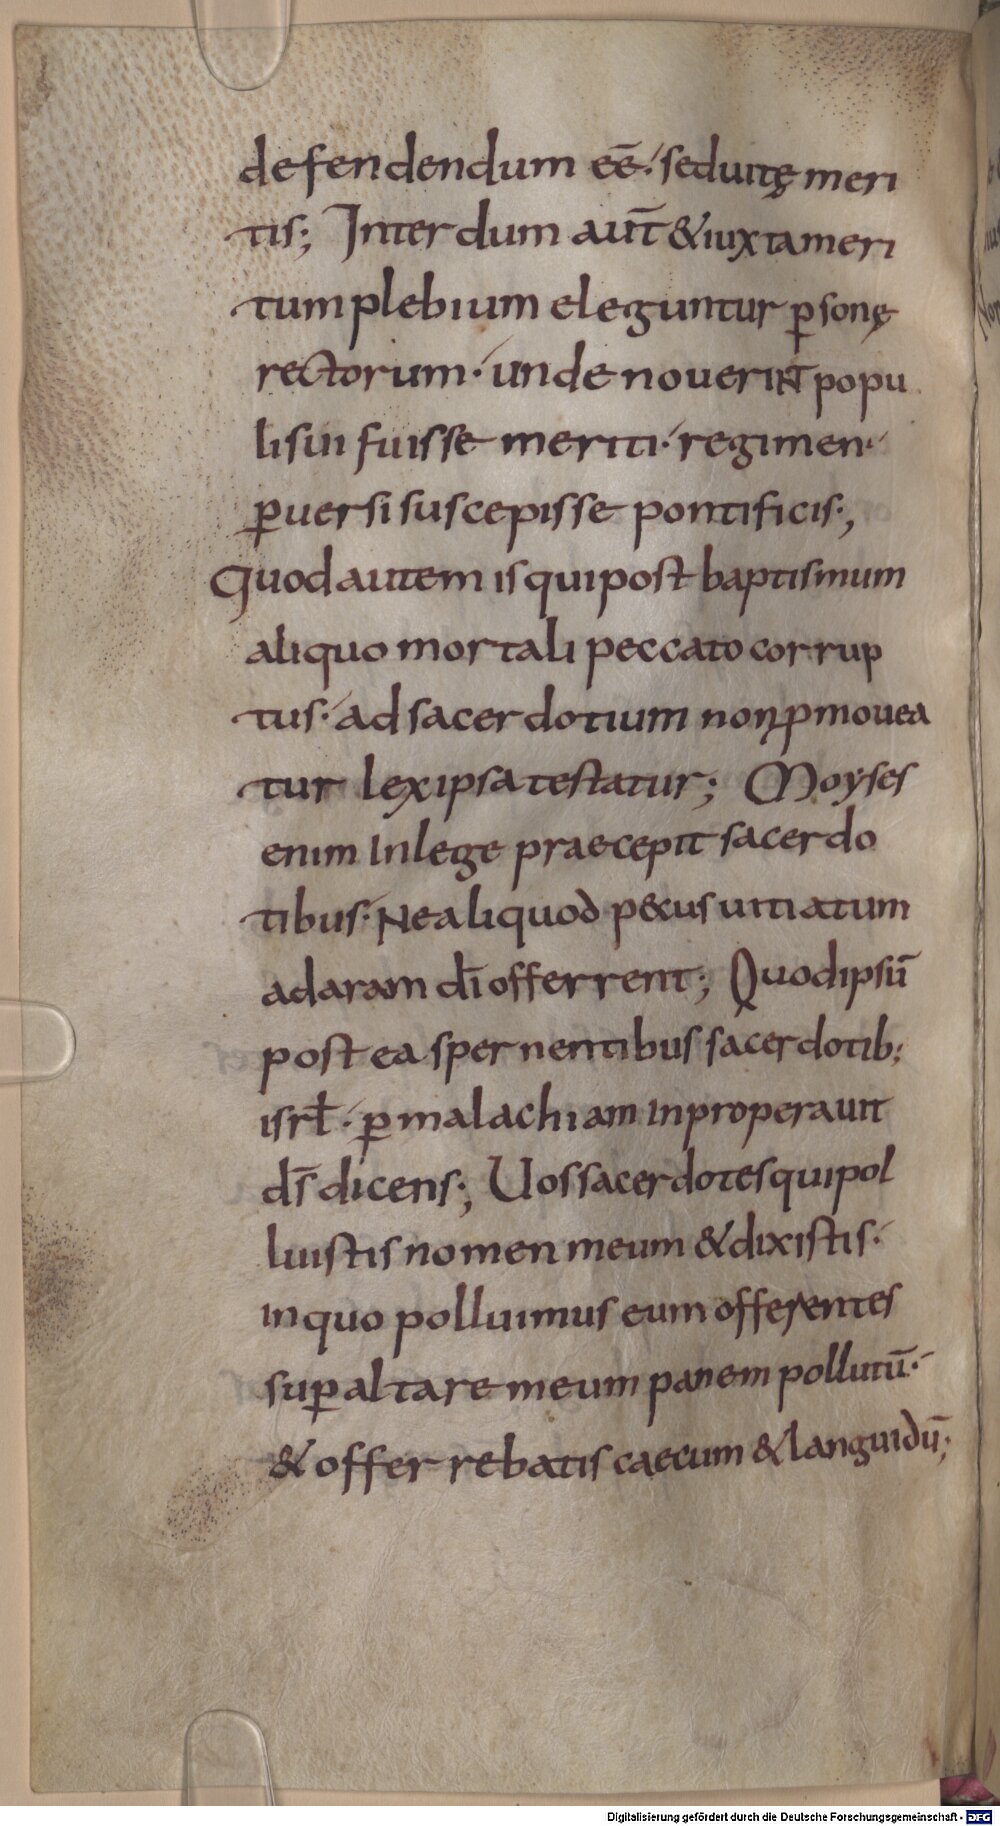 defendendum eē·sed uitę meri
tis; Interdum aut̄ & iuxta meri
tum plebium eleguntur ꝑsonę
rectorum· unde nouerint popu
li sui fuisse meriti· regimen·
ꝑuersi suscepisse pontificis·,
Quod autem is qui post baptismum
aliquo mortali peccato corrup
tus· ad sacerdotium non ꝓmouea
tur lex ipsa testatur; Moyses
enim In lege praecepit sacerdo
tibus· Ne aliquod pecus uitiatum
ad aram dī offerrent·, Quod ipsū
postea spernentibus sacerdotib;
isrł· ꝑ malachiam inproperauit
ds̄ dicens·, Uos sacerdotes qui pol
luistis nomen meum & dixistis·
in quo polluimus eum offerentes
suꝑ altare meum panem pollutū·
& offerrebatis caecum & languidū;
Digitalisierung gefördert durch die Deutsche Forschungsgemeinschaft - DFG